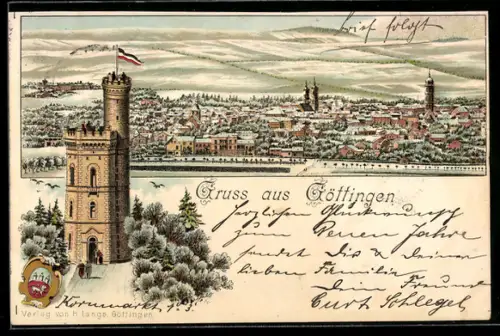 Brief folgt
Gruss aus Göttingen
herzlichen Glückwunsch
zum Neuen Jahre
sendet Dir & Deiner
lieben Familie
Dein Freund
Curt Schlegel
Kornmarkt
Verlag von H. Lange, Göttingen.